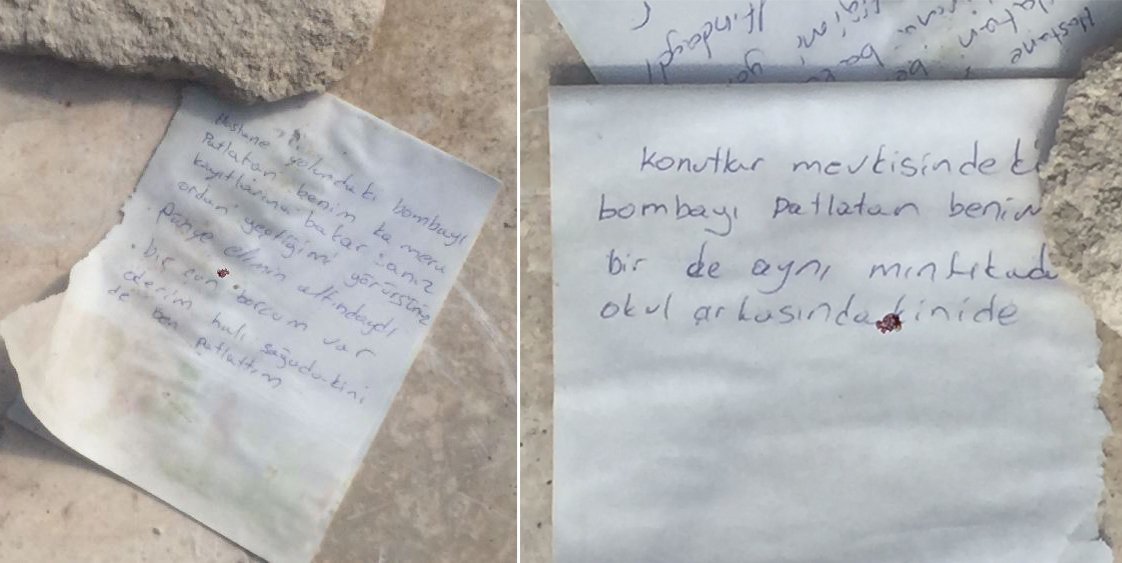 Hastane yolundaki bombayı
Patlatan benim kamera
kayıtlarına bakarsanız
ordan geçtiğimi görürsünüz
Dünya elimin altındaydı
bir can borcum var
ederim halı sağada-kini
de ben patlattım
Konutlar mevkisindeki
bombayı patlatan benim
bir de aynı mıntıkada
okul arkasındakinide